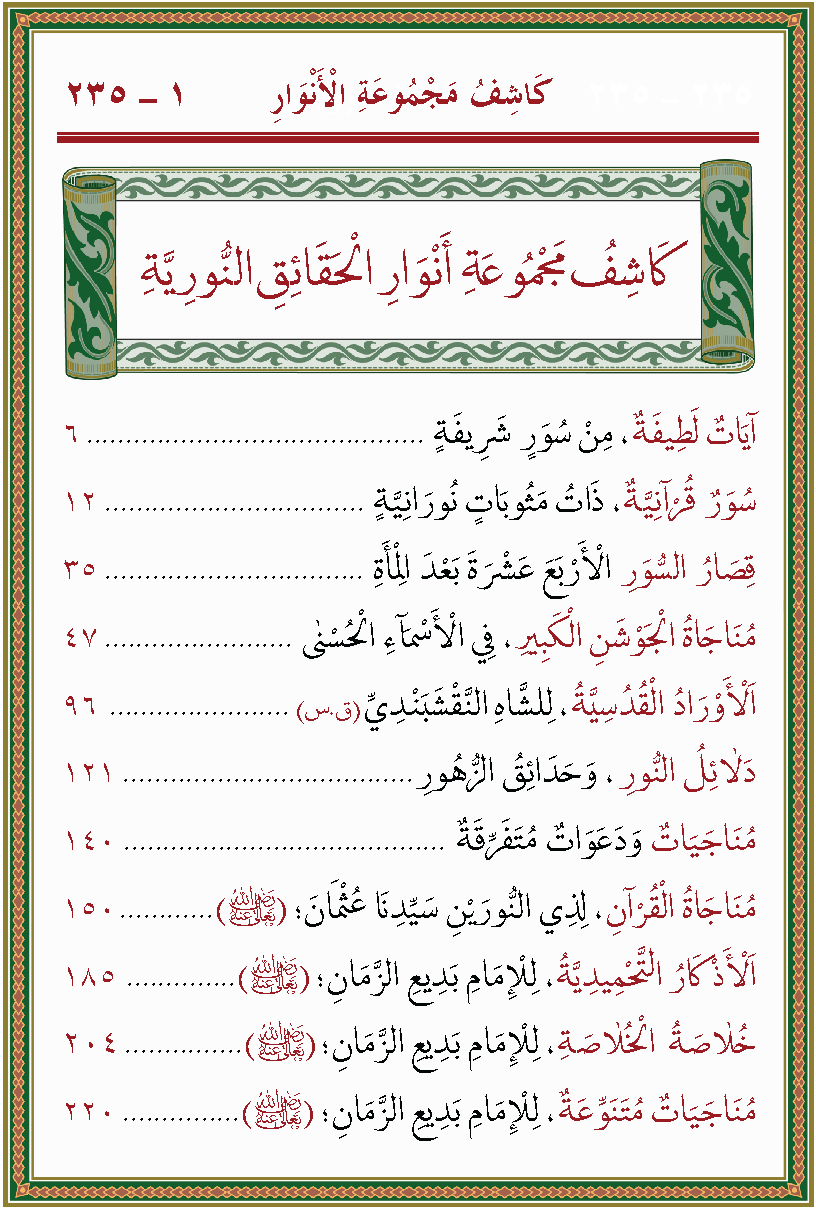 كَاشِفُ مَجْمُوعَةِ الْأَنْوَارِ ١ - ٢٣٥
كَاشِفُ مَجْمُوعَةِ أَنْوَارِ الْحَقَائِقِ النُّورِيَّةِ
آيَاتٌ لَطِيفَةٌ، مِنْ سُوَرٍ شَرِيفَةٍ ........................................... ٦
سُوَرٌ قُرْآنِيَّةٌ، ذَاتُ مَثُوبَاتٍ نُورَانِيَّةٍ ................................. ١٢
قِصَارُ السُّوَرِ الْأَرْبَعَ عَشْرَةَ بَعْدَ الْمِأَةِ ................................. ٣٥
مُنَاجَاةُ الْجَوْشَنِ الْكَبِيرِ، فِي الْأَسْمَآءِ الْحُسْنٰى ........................ ٤٧
اَلْأَوْرَادُ الْقُدُسِيَّةُ، لِلشَّاهِ النَّقْشَبَنْدِيِّ (ق.س) ....................... ٩٦
دَلَائِلُ النُّورِ، وَحَدَائِقُ الزُّهُورِ ..................................... ١٢١
مُنَاجَيَاتٌ وَدَعَوَاتٌ مُتَفَرِّقَةٌ ......................................... ١٤٠
مُنَاجَاةُ الْقُرْآنِ، لِذِي النُّورَيْنِ سَيِّدِنَا عُثْمَانَ؛ (رضي الله تعالى عنه) ............ ١٥٠
اَلْأَذْكَارُ التَّحْمِيدِيَّةُ، لِلْإِمَامِ بَدِيعِ الزَّمَانِ؛ (رضي الله تعالى عنه) .............. ١٨٥
خُلَاصَةُ الْخُلَاصَةِ، لِلْإِمَامِ بَدِيعِ الزَّمَانِ؛ (رضي الله تعالى عنه) ............... ٢٠٤
مُنَاجَيَاتٌ مُتَنَوِّعَةٌ، لِلْإِمَامِ بَدِيعِ الزَّمَانِ؛ (رضي الله تعالى عنه) ............... ٢٢٠